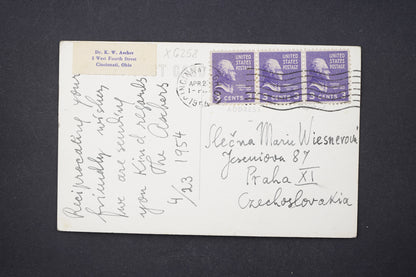 Dr. K. W. Ascher
5 West Fourth Street
Cincinnati, Ohio
X6258
POST CARD
Reciprocating your
friendly wishes,
we are sending
you Kind regards
The Aschers
4/23 1954
UNITED STATES POSTAGE
3 CENTS 3
UNITED STATES POSTAGE
3 CENTS 3
UNITED STATES POSTAGE
3 CENTS 3
APR 2
Slečna Marie Wiesnerová
Jeseniova 87
Praha XI
Czechoslovakia